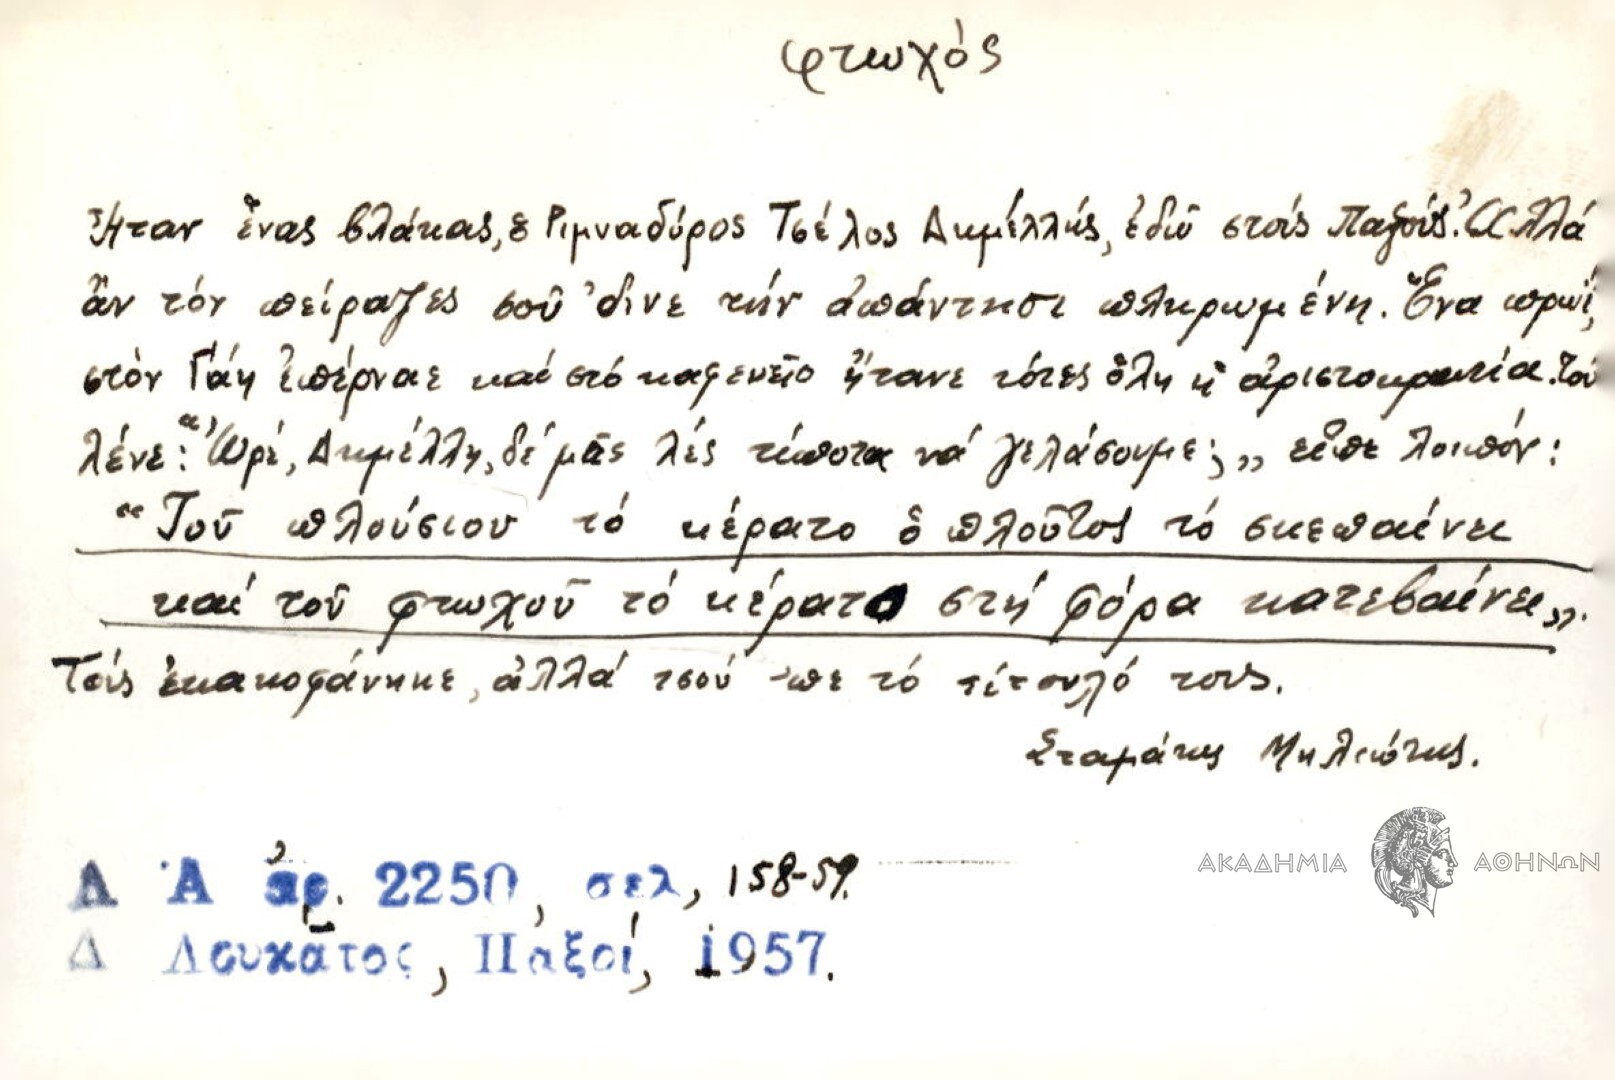 φτωχός
Ἤταν ἕνας βλάκας, ὁ Τσέλος Δημέλλης, ἐδῶ στοὺς Παξούς. Ἀλλά
ἂν τόν πείραζες σοῦ 'δινε τήν ἀπάντησι πληρωμένη. Ἕνα πρωΐ,
στὸν Γάη ἐπέρναε καί στό καφενεῖο ἤτανε τότες ὅλη ἡ ἀριστοκρατία. Τοῦ
λένε: "Ὠρέ, Δημέλλη, δέ μᾶς λές τίποτα νά γελάσουμε;" εἶπε λοιπόν:
"Τοῦ πλούσιου τό κέρατο ὁ πλοῦτος τό σκεπαίνει
καί τοῦ φτωχοῦ τό κέρατο στή φόρα κατεβαίνει".
Τούς ἐκακοφάνηκε, ἀλλά τσού 'πε τό τίτουλό τους.
Σταμάτης Μηλιώτης.
Λ Ἀ ἀρ. 2250, σελ, 158-59.
Δ Λουκᾶτος, Παξοί, 1957.
ΑΚΑΔΗΜΙΑ ΑΘΗΝΩΝ